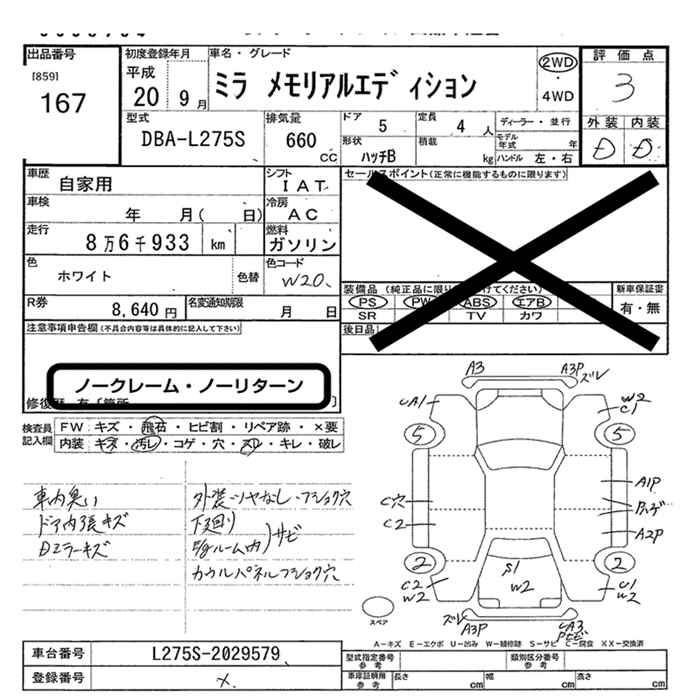 出品番号
[859]
167
初度登録年月
平成
20 9月
車名・グレード
ミラ メモリアルエディション
2WD
・
4WD
評価点
3
外装 内装
D D
型式
DBA-L275S
排気量
660
cc
ドア 5
定員 4 人
ディーラー・並行
形状
ハッチB
積載
kg
モデル年式 年
ハンドル 左・右
車歴
自家用
シフト
IAT
セールスポイント(正常に機能するものに限ります)
車検
年 月( 日)
冷房
AC
走行
8万6千933 km
燃料
ガソリン
色
ホワイト
色替
色コード
W20
装備品(純正品に限り
けてください)
PS PW ABS エアB
SR TV カワ
新車保証書
有・無
R券
8,640円
名変通知期限
月 日
後日品
注意事項申告欄(不具合内容等は具体的に記入して下さい)
ノークレーム・ノーリターン
検査員記入欄
FW キズ・飛石・ヒビ割・リペア跡・×要
内装 キズ・汚レ・コゲ・穴・スレ・キレ・破レ
車内臭い
ドア内張キズ
Dミラーキズ
外装ツヤなし・フショク穴
下廻り
E/gルーム内)サビ
カウルパネルフショク穴
A3 A3P ズレ
UA1
W2
C1
5 5
C穴
C2
A1P
A2P
2 2
S1
W2
C2
W2
U1
W2
ズレ
A3P
UA3
スペア
A-キズ E-エクボ U-凹み W-補修跡 S-サビ C-腐食 XX-交換済
車台番号 L275S-2029579
登録番号 ×
型式指定番号
参考
類別区分番号
参考
車庫証明用
参考
長さ cm 幅 cm 高さ cm